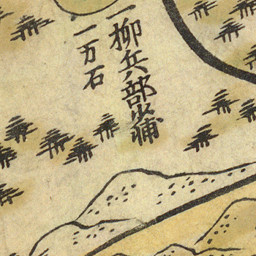 一柳兵部少輔
一万石